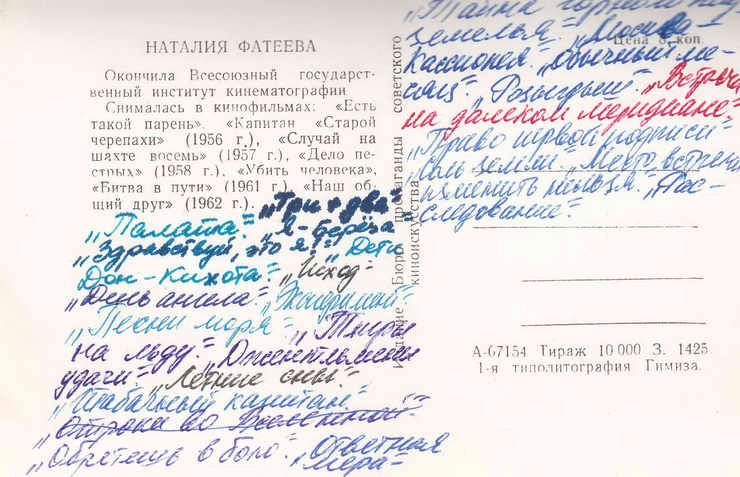 НАТАЛИЯ ФАТЕЕВА
Окончила Всесоюзный государст-
венный институт кинематографии
Снималась в кинофильмах: «Есть
такой парень». «Капитан «Старой
черепахи» (1956 г.), «Случай на
шахте восемь» (1957 г.), «Дело пе-
стрых» (1958 г.) «Убить человека»,
«Битва в пути» (1961 г.) «Наш об-
щий друг» (1962 г.).
„Три+два“
„Палата“ „Я-берёза“
„Здравствуй, это я!“ „Дети
Дон-Кихота“ „Исход“
„День ангела“
„Песни моря“ „Тигры
на льду“ „Джентльмены
удачи“ „Летние сны“
„Табачный капитан“
„Отроки во Вселенной“
„Обретёшь в бою“ „Ответная
мера“
Издание „Бюро пропаганды советского
киноискусства
„Тайна горного под-
земелья“ „Москва-
Кассиопея“ „Обычный ме-
сяц“ „Розыгрыш“ „Встреча
на далеком меридиане“
„Право первой подписи“
„Соль земли“ „Место встречи
изменить нельзя“ „Рас-
следование“
Цена 8 коп.
А-67154 Тираж 10 000 З. 1425
1-я типолитография Гимиза.